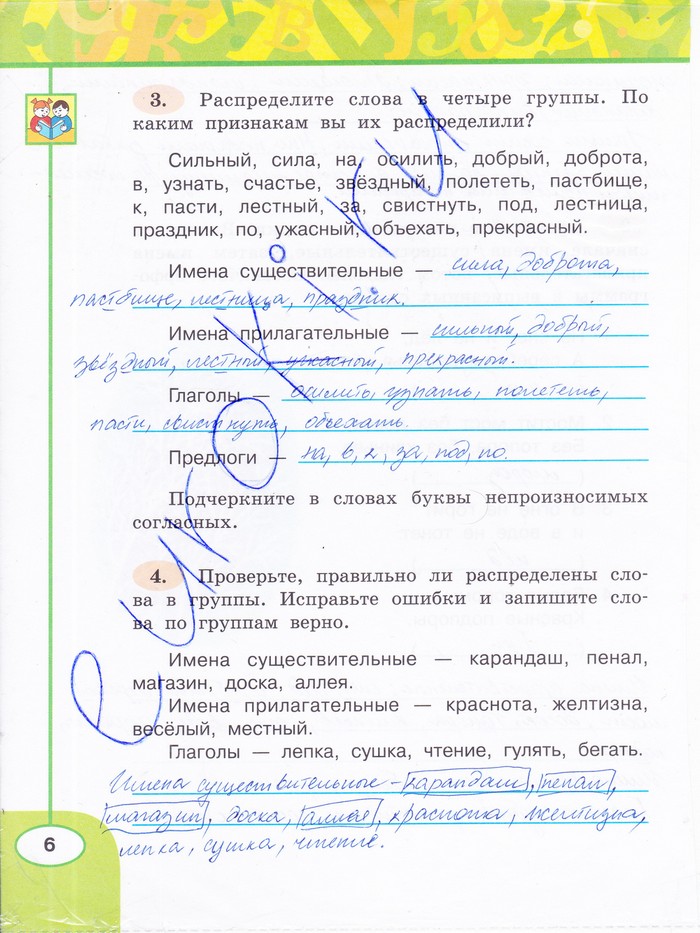 3. Распределите слова в четыре группы. По
каким признакам вы их распределили?
Сильный, сила, на, осилить, добрый, доброта,
в, узнать, счастье, звёздный, полететь, пастбище,
к, пасти, лестный, за, свистнуть, под, лестница,
праздник, по, ужасный, объехать, прекрасный.
Имена существительные — сила, доброта,
пастбище, лестница, праздник.
Имена прилагательные — сильный, добрый,
звёздный, лестный, ужасный, прекрасный.
Глаголы — осилить, узнать, полететь,
пасти, свистнуть, объехать.
Предлоги — на, в, к, за, под, по.
Подчеркните в словах буквы непроизносимых
согласных.
4. Проверьте, правильно ли распределены сло-
ва в группы. Исправьте ошибки и запишите сло-
ва по группам верно.
Имена существительные — карандаш, пенал,
магазин, доска, аллея.
Имена прилагательные — краснота, желтизна,
весёлый, местный.
Глаголы — лепка, сушка, чтение, гулять, бегать.
Имена существительные - карандаш, пенал,
магазин, доска, аллея, краснота, желтизна,
лепка, сушка, чтение.
6
еuroкiки